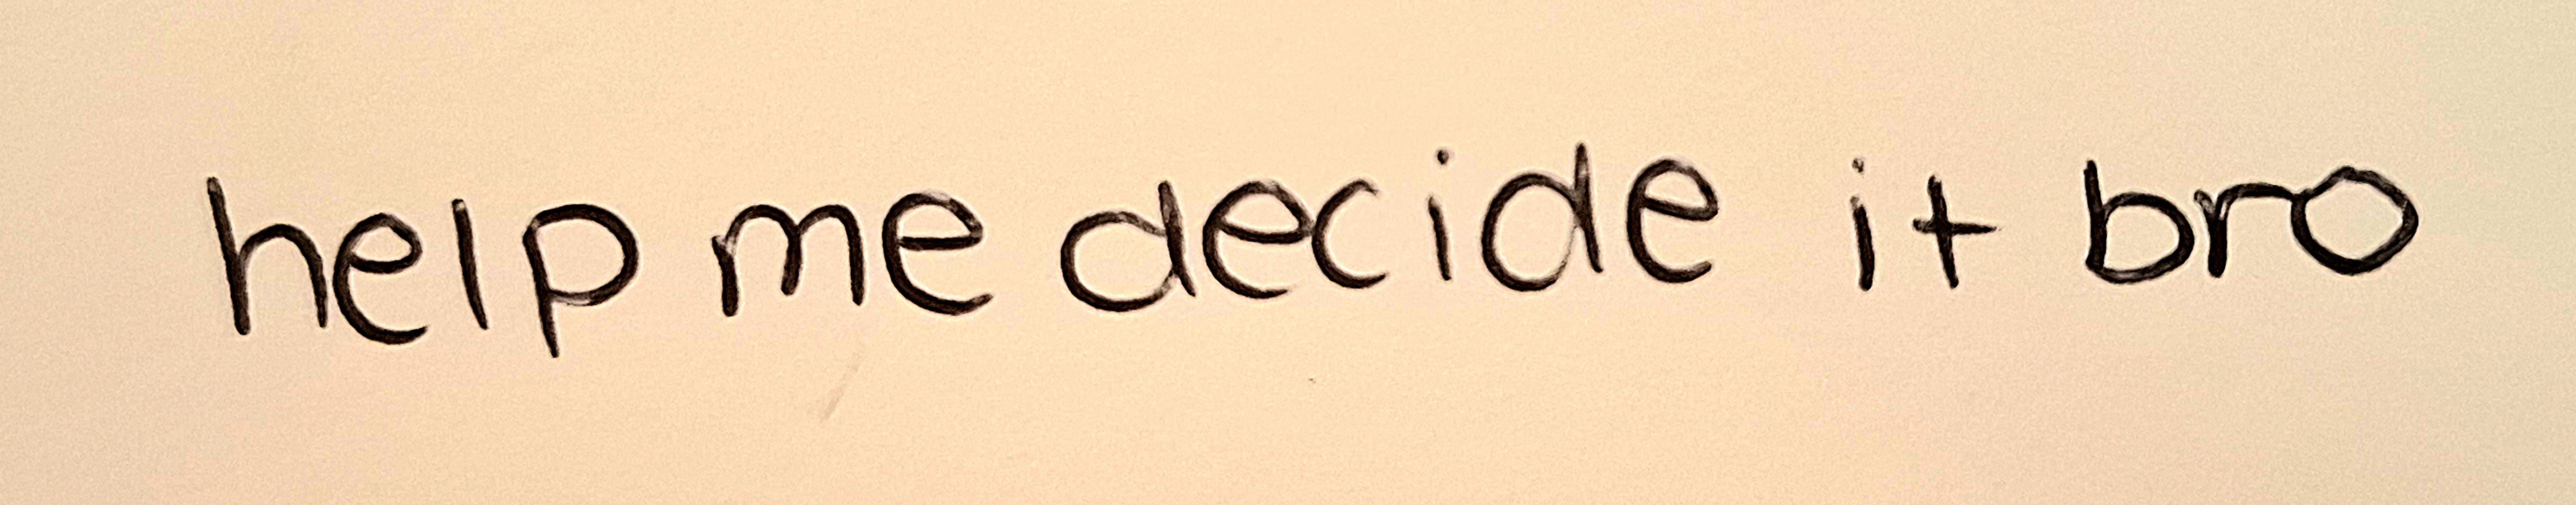 help me decide it bro